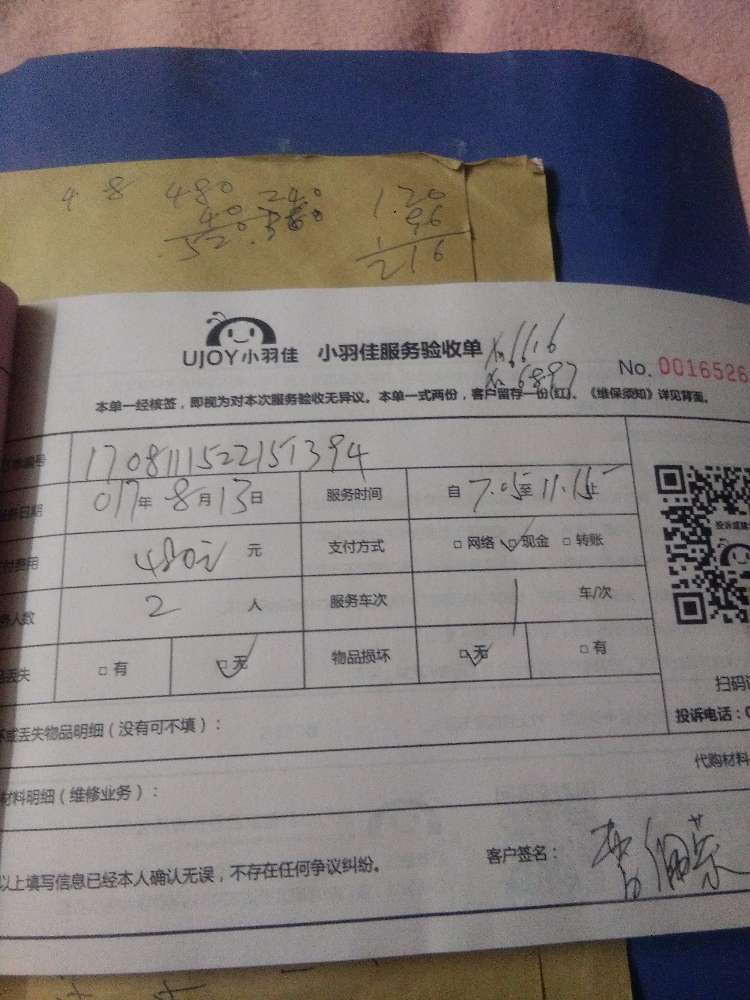 4 8 480 240 120
40 360 96
520 216
UJOY小羽佳 小羽佳服务验收单 6616
No. 0016526 6897
本单一经核签，即视为对本次服务验收无异议。本单一式两份，客户留存一份(红)、《维保须知》详见背面。
编号 1708111522151394
日期 017年 8月13日 服务时间 自 7.05至11.15止
付费用 480元 元 支付方式 □ 网络 ☑ 现金 □ 转账
人数 2 人 服务车次 1 车/次
丢失 □ 有 ☑ 无 物品损坏 ☑ 无 □ 有
扫码
丢失物品明细（没有可不填）： 投诉电话：0
代购材料
材料明细（维修业务）：
以上填写信息已经本人确认无误，不存在任何争议纠纷。 客户签名：